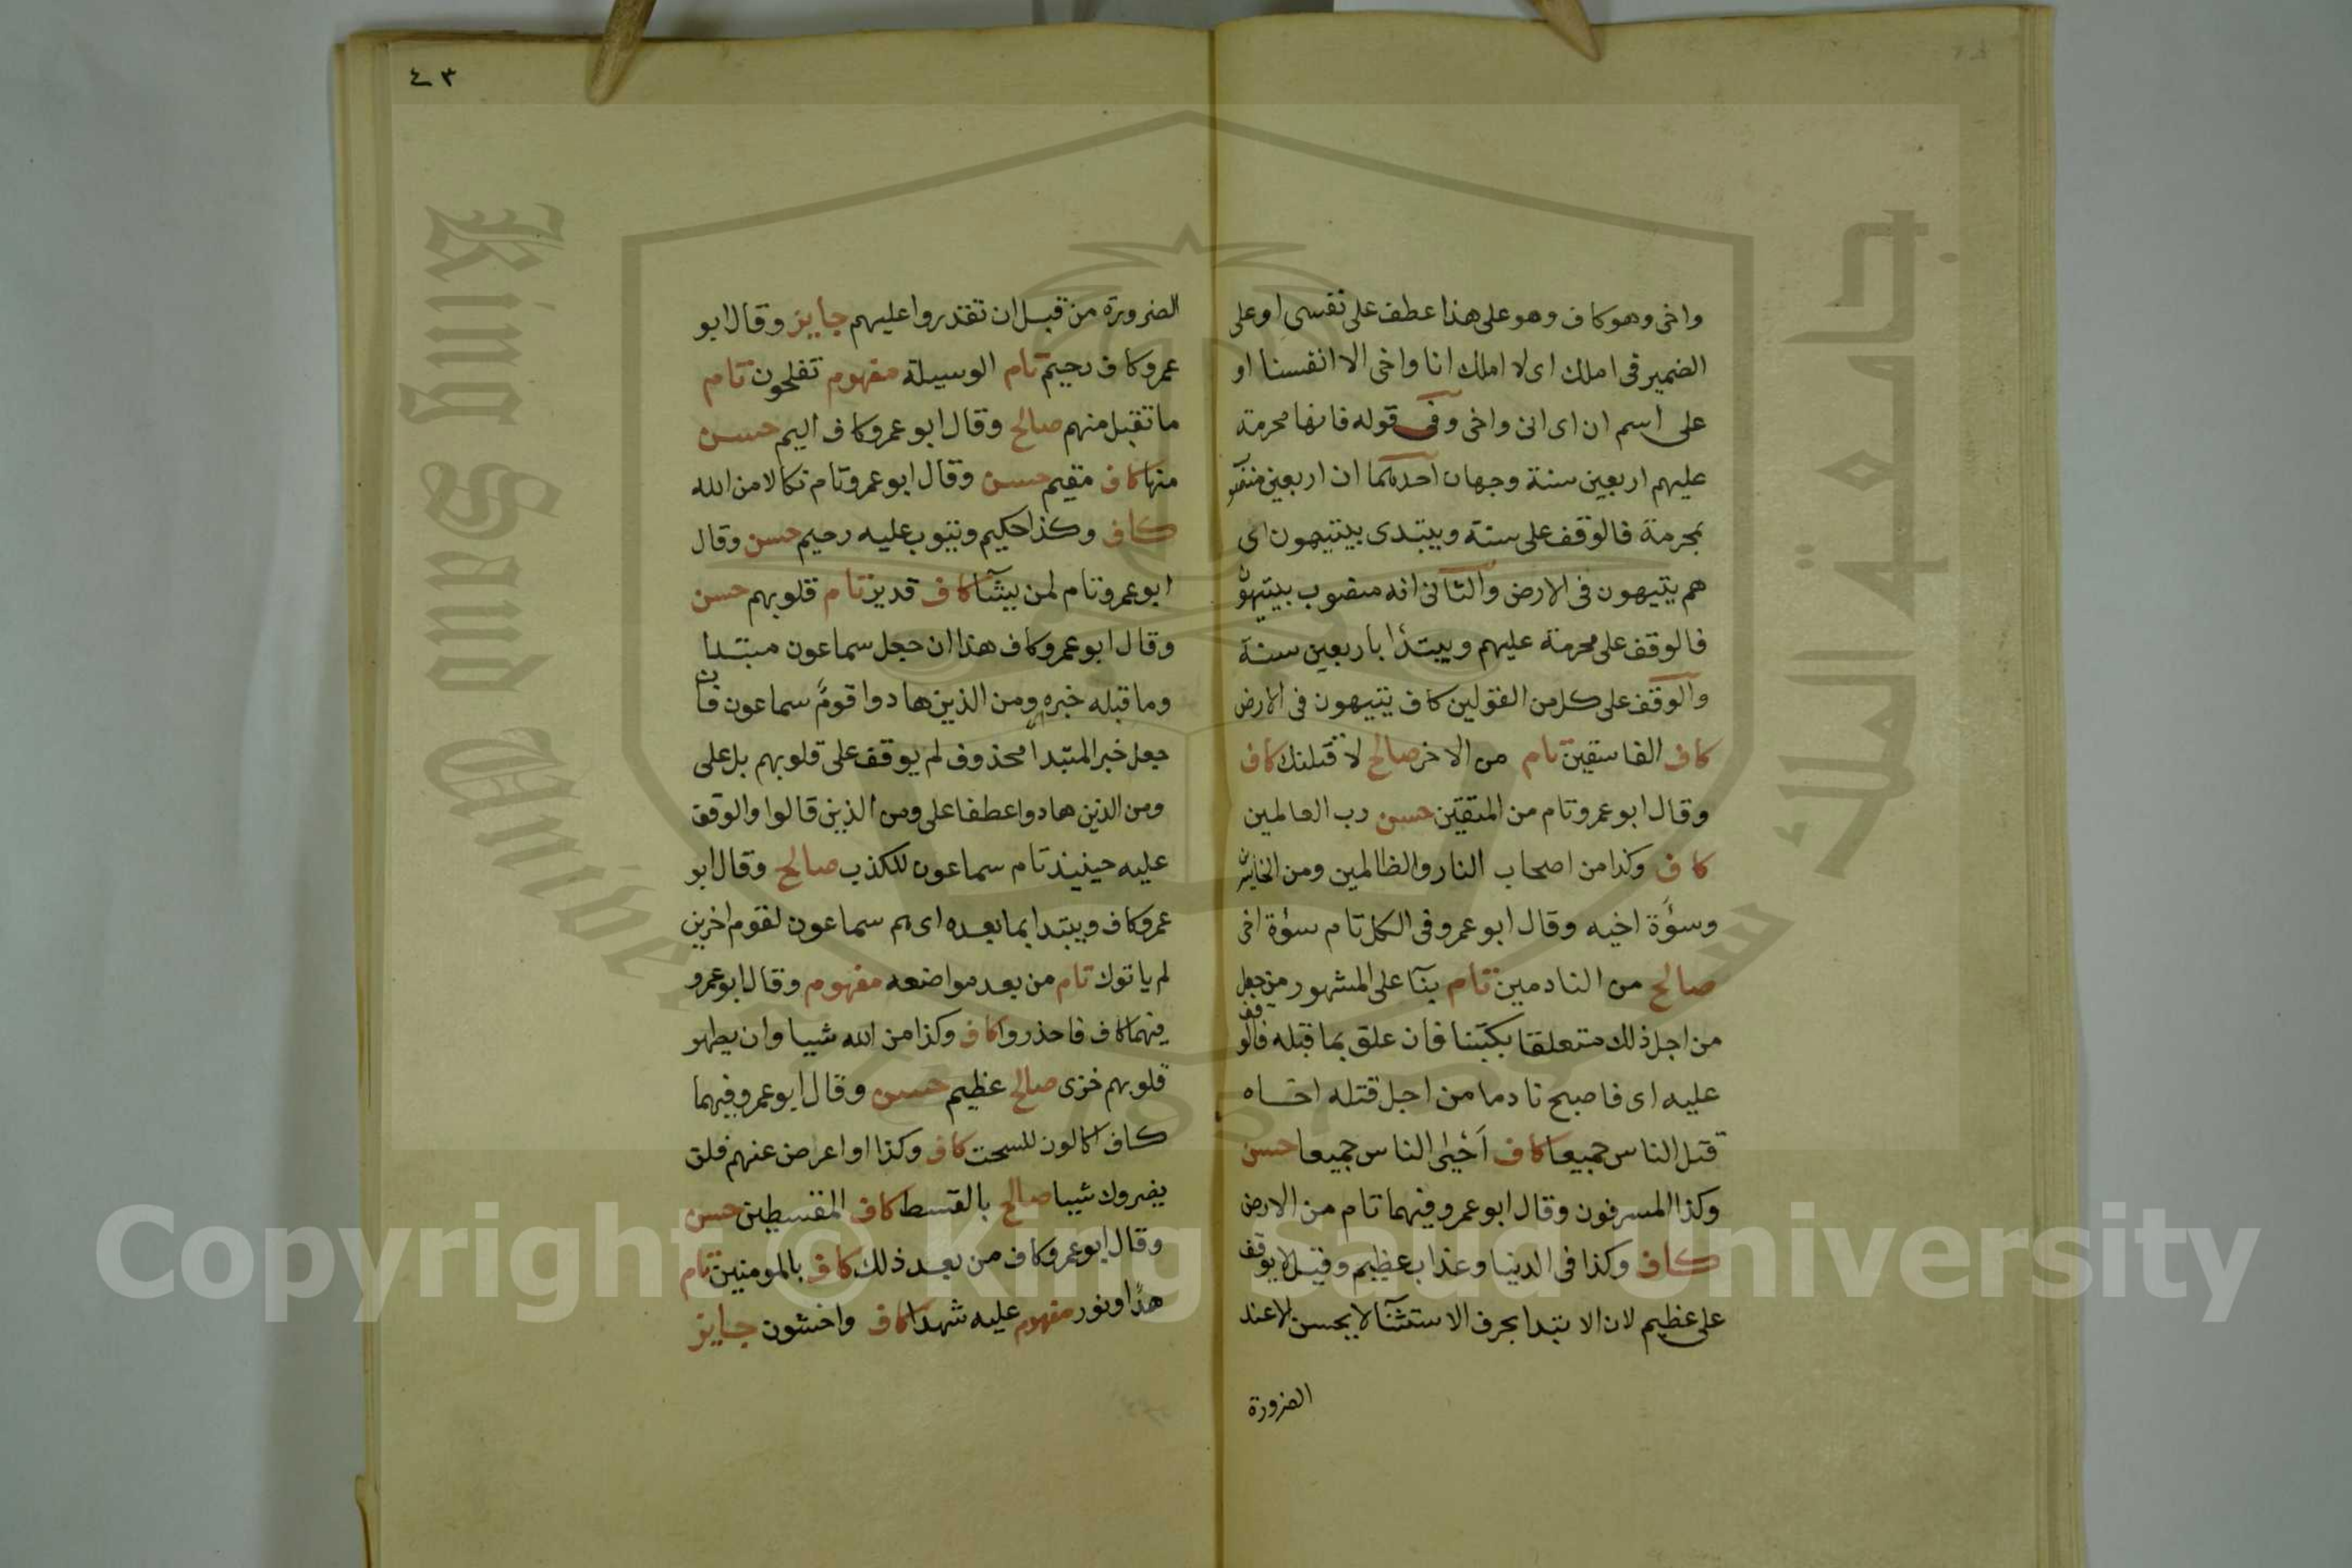 واخى وهو كاف وهو على هذا عطف على نفسى او على
الضمير فى املك اى لا املك انا واخى الا انفسنا او
على اسم ان اى انى واخى وفى قوله فانها محرمة
عليهم اربعين سنة وجهان احدهما ان اربعين منصو
بمحرمة فالوقف على سنة ويبتدى بيتيهون اى
هم يتيهون فى الارض والثانى انه منصوب بيتيهون
فالوقف على محرمة عليهم ويبتدأ باربعين سنة
والوقف على كل من القولين كاف يتيهون فى الارض
كاف الفاسقين تام من الاخر صالح لاقتلنك كاف
وقال ابو عمرو تام من المتقين حسن رب العالمين
كاف وكذا من اصحاب النار والظالمين ومن الخاسرين
وسوءة اخيه وقال ابو عمرو فى الكل تام سوءة اخى
صالح من النادمين تام بنآ على المشهور من جعل
من اجل ذلك متعلقا بكتبنا فان علق بما قبله فالوقف
عليه اى فاصبح نادما من اجل قتله اخاه
قتل الناس جميعا كاف أحيى الناس جميعا حسن
وكذا المسرفون وقال ابو عمرو فيهما تام من الارض
كاف وكذا فى الدنيا وعذاب عظيم وقيل لا يوقف
على عظيم لان الابتدا بحرف الاستثنآ لا يحسن الا عند
الضرورة
٤٣
الضرورة من قبل ان تقدروا عليهم جايز وقال ابو
عمرو كاف رحيم تام الوسيلة مفهوم تفلحون تام
ما تقبل منهم صالح وقال ابو عمرو كاف اليم حسن
منها كاف مقيم حسن وقال ابو عمرو تام نكالا من الله
كاف وكذا حكيم ويتوب عليه رحيم حسن وقال
ابو عمرو تام لمن يشآ كاف قدير تام قلوبهم حسن
وقال ابو عمرو كاف هذا ان جعل سماعون مبتدا
وما قبله خبره ومن الذين هادوا قوم سماعون فان
جعل خبر المبتدا محذوف لم يوقف على قلوبهم بل على
ومن الذين هادوا عطفا على ومن الذين قالوا والوقف
عليه حينيذ تام سماعون للكذب صالح وقال ابو
عمرو كاف ويبتدا بما بعده اى هم سماعون لقوم اخرين
لم ياتوك تام من بعد مواضعه مفهوم وقال ابو عمرو
فيهما كاف فاحذروا كاف وكذا من الله شيا وان يطهر
قلوبهم خزى صالح عظيم حسن وقال ابو عمرو فيهما
كاف اكالون للسحت كاف وكذا او اعرض عنهم فلن
يضروك شيا صالح بالقسط كاف المقسطين حسن
وقال ابو عمرو كاف من بعد ذلك كاف بالمومنين تام
هدًا ونور مفهوم عليه شهدا كاف واخشون جايز
King Saud
جامعة الملك سعود
1957
Copyright © King Saud University